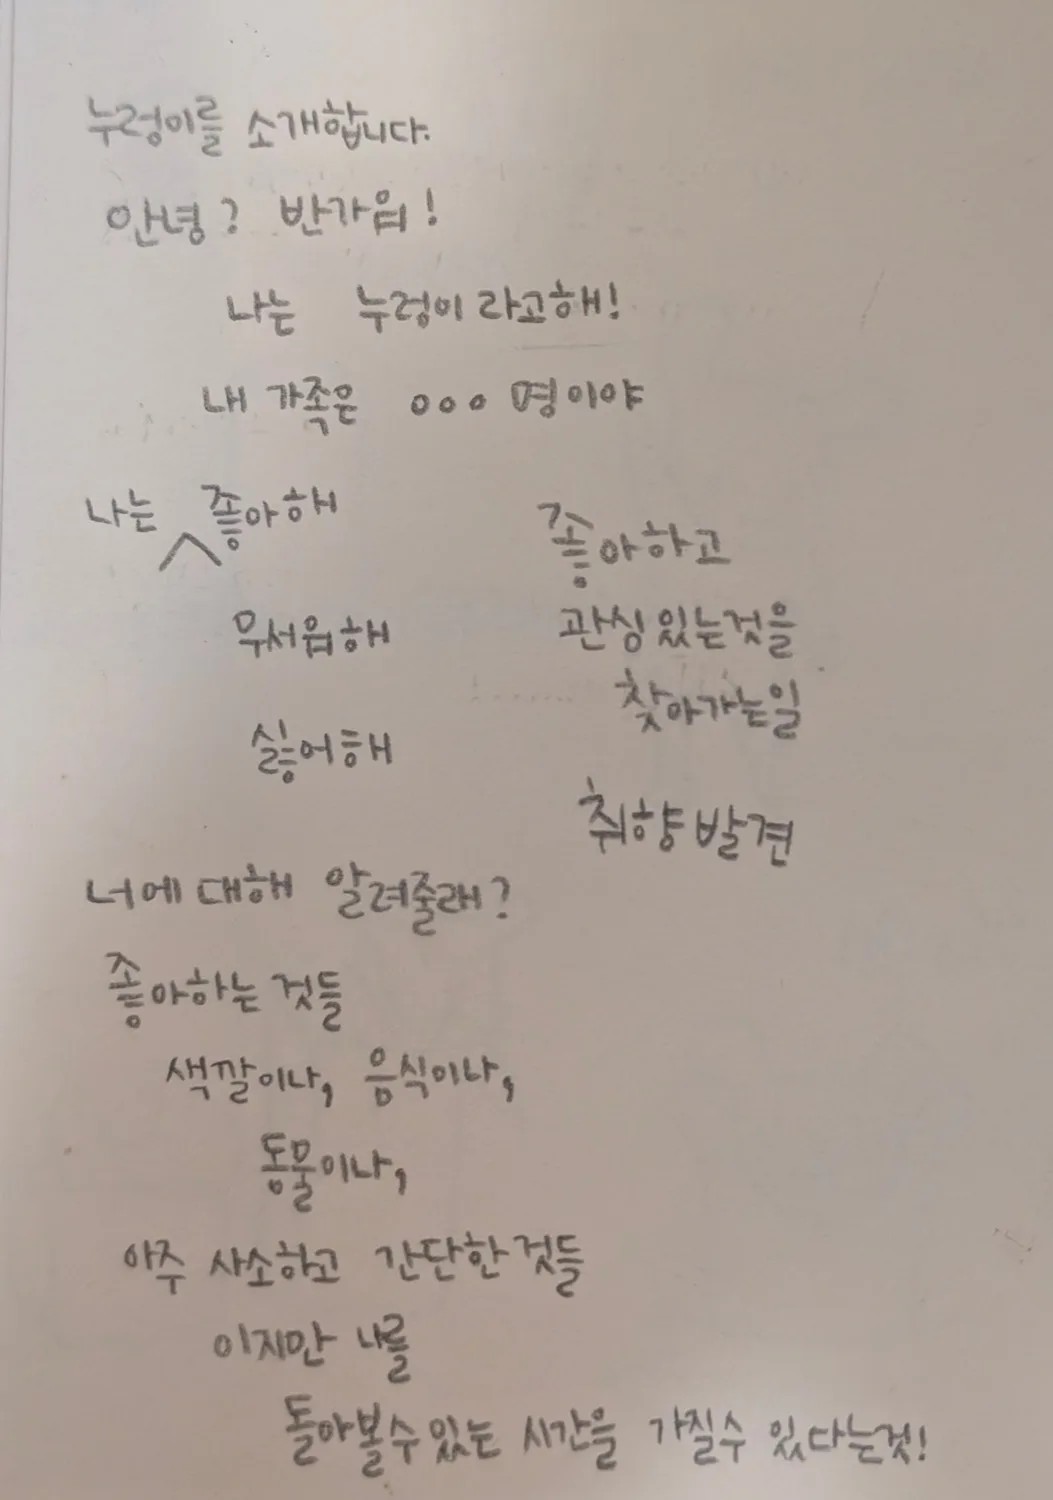 누렁이를 소개합니다.
안녕? 반가워!
나는 누렁이라고해!
내 가족은 ooo 명이야
나는 ∧ 좋아해
무서워해
싫어해
좋아하고
관심있는것을
찾아가는일
취향발견
너에 대해 알려줄래?
좋아하는 것들
색깔이나, 음식이나,
동물이나,
아주 사소하고 간단한것들
이지만 나를
돌아볼수있는 시간을 가질수 있다는것!